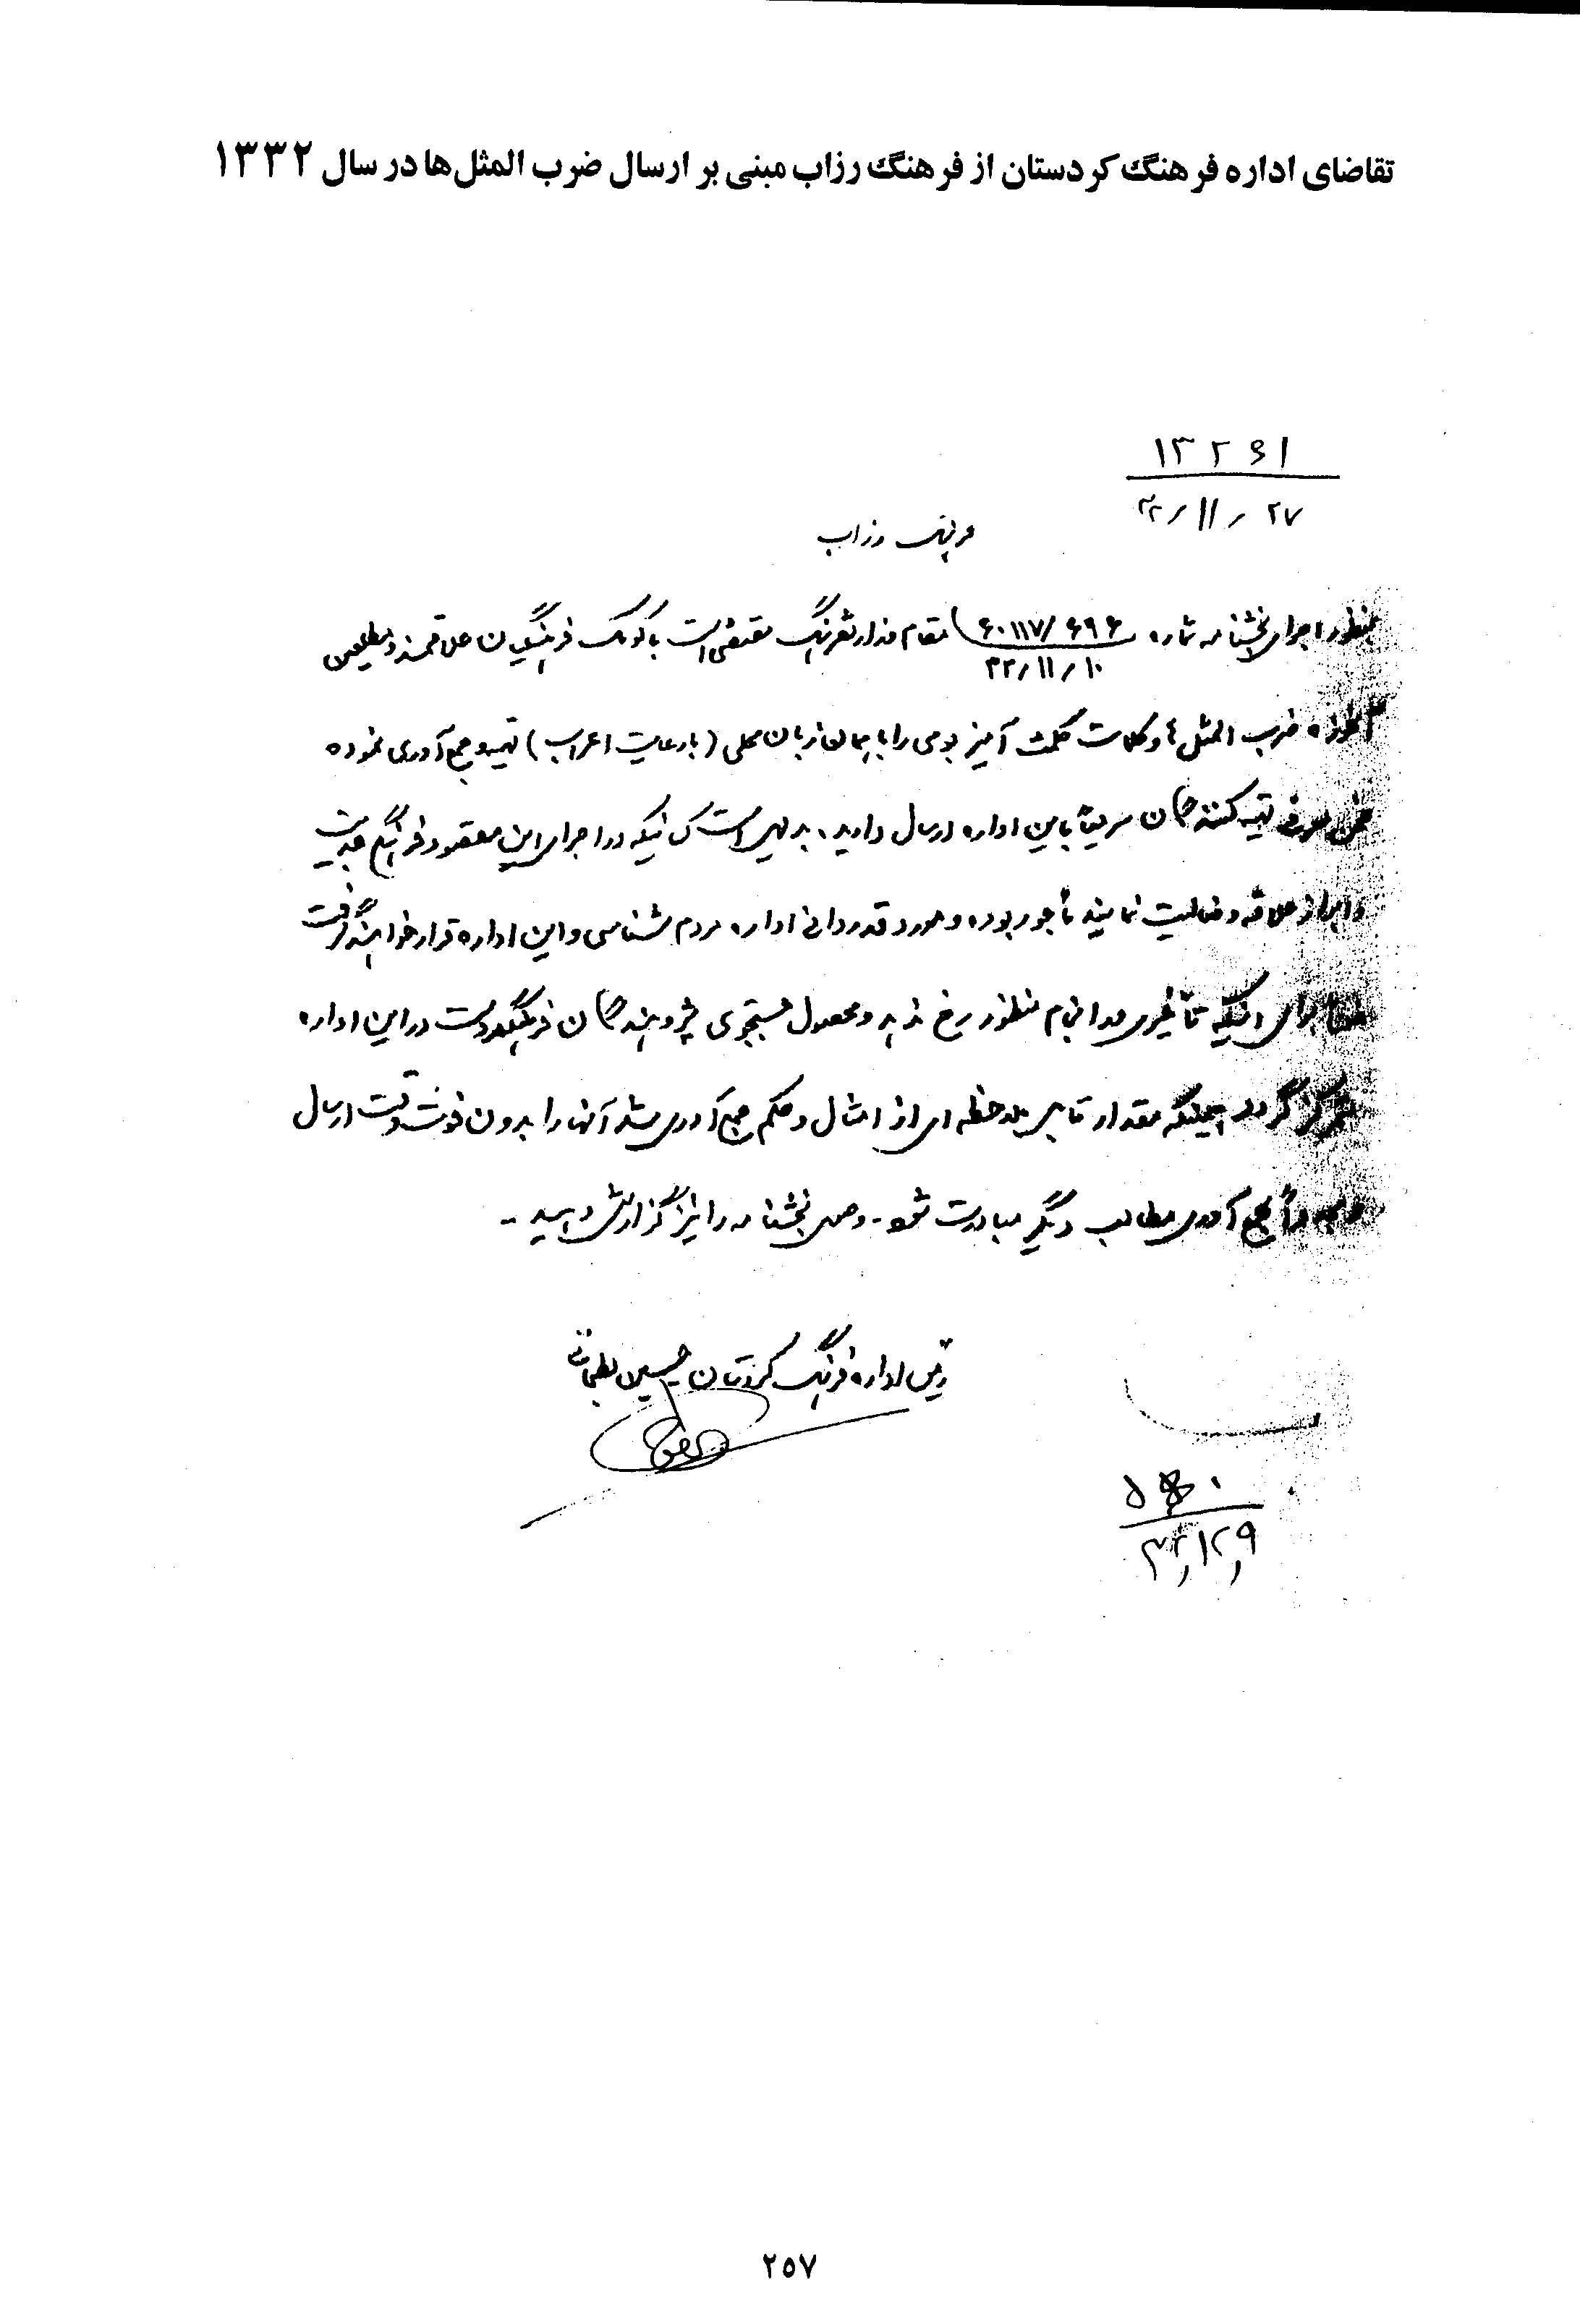 تقاضای اداره فرهنگ کردستان از فرهنگ رزاب مبنی بر ارسال ضرب المثل‌ها در سال ۱۳۳۲
۱۳۲۶۱
۳۲/۱۱/۲۷
فرهنگ رزاب
بمنظور اجرای بخشنامه شماره ۶۰۱۱۷/۶۹۶ مقام وزارت فرهنگ مقتضی است با کومک فرهنگیان علاقمند و مطلعین
۳۲/۱۱/۱۰
آموزه ضرب المثل ها و کلمات حکمت آمیز بومی را با همان زبان محلی (با رعایت اعراب) تهیه و جمع آوری نموده
ضمن معرفی تهیه کنندگان سریعاً باین اداره ارسال دارید، بدیهی است کسانیکه در اجرای این مقصود فرهنگی جدیت
و ابراز علاقه و فعالیت نمایند مأجور بوده و مورد قدردانی اداره مردم شناسی و این اداره قرار خواهند گرفت
ضمناً برای اینکه تأخیری در انجام منظور رخ ندهد و محصول جستجوی پژوهندگان فرهنگدوست در این اداره
متمرکز گردد همینکه مقدار قابل ملاحظه ای از امثال و حکم جمع آوری شد آنها را بدون فوت وقت ارسال
و مجدداً بجمع آوری مطالب دیگر مبادرت شود - وصول بخشنامه را نیز گزارش دهید -
رئیس اداره فرهنگ کردستان حسین
۳۲/۱۲/۹
۲۵۷